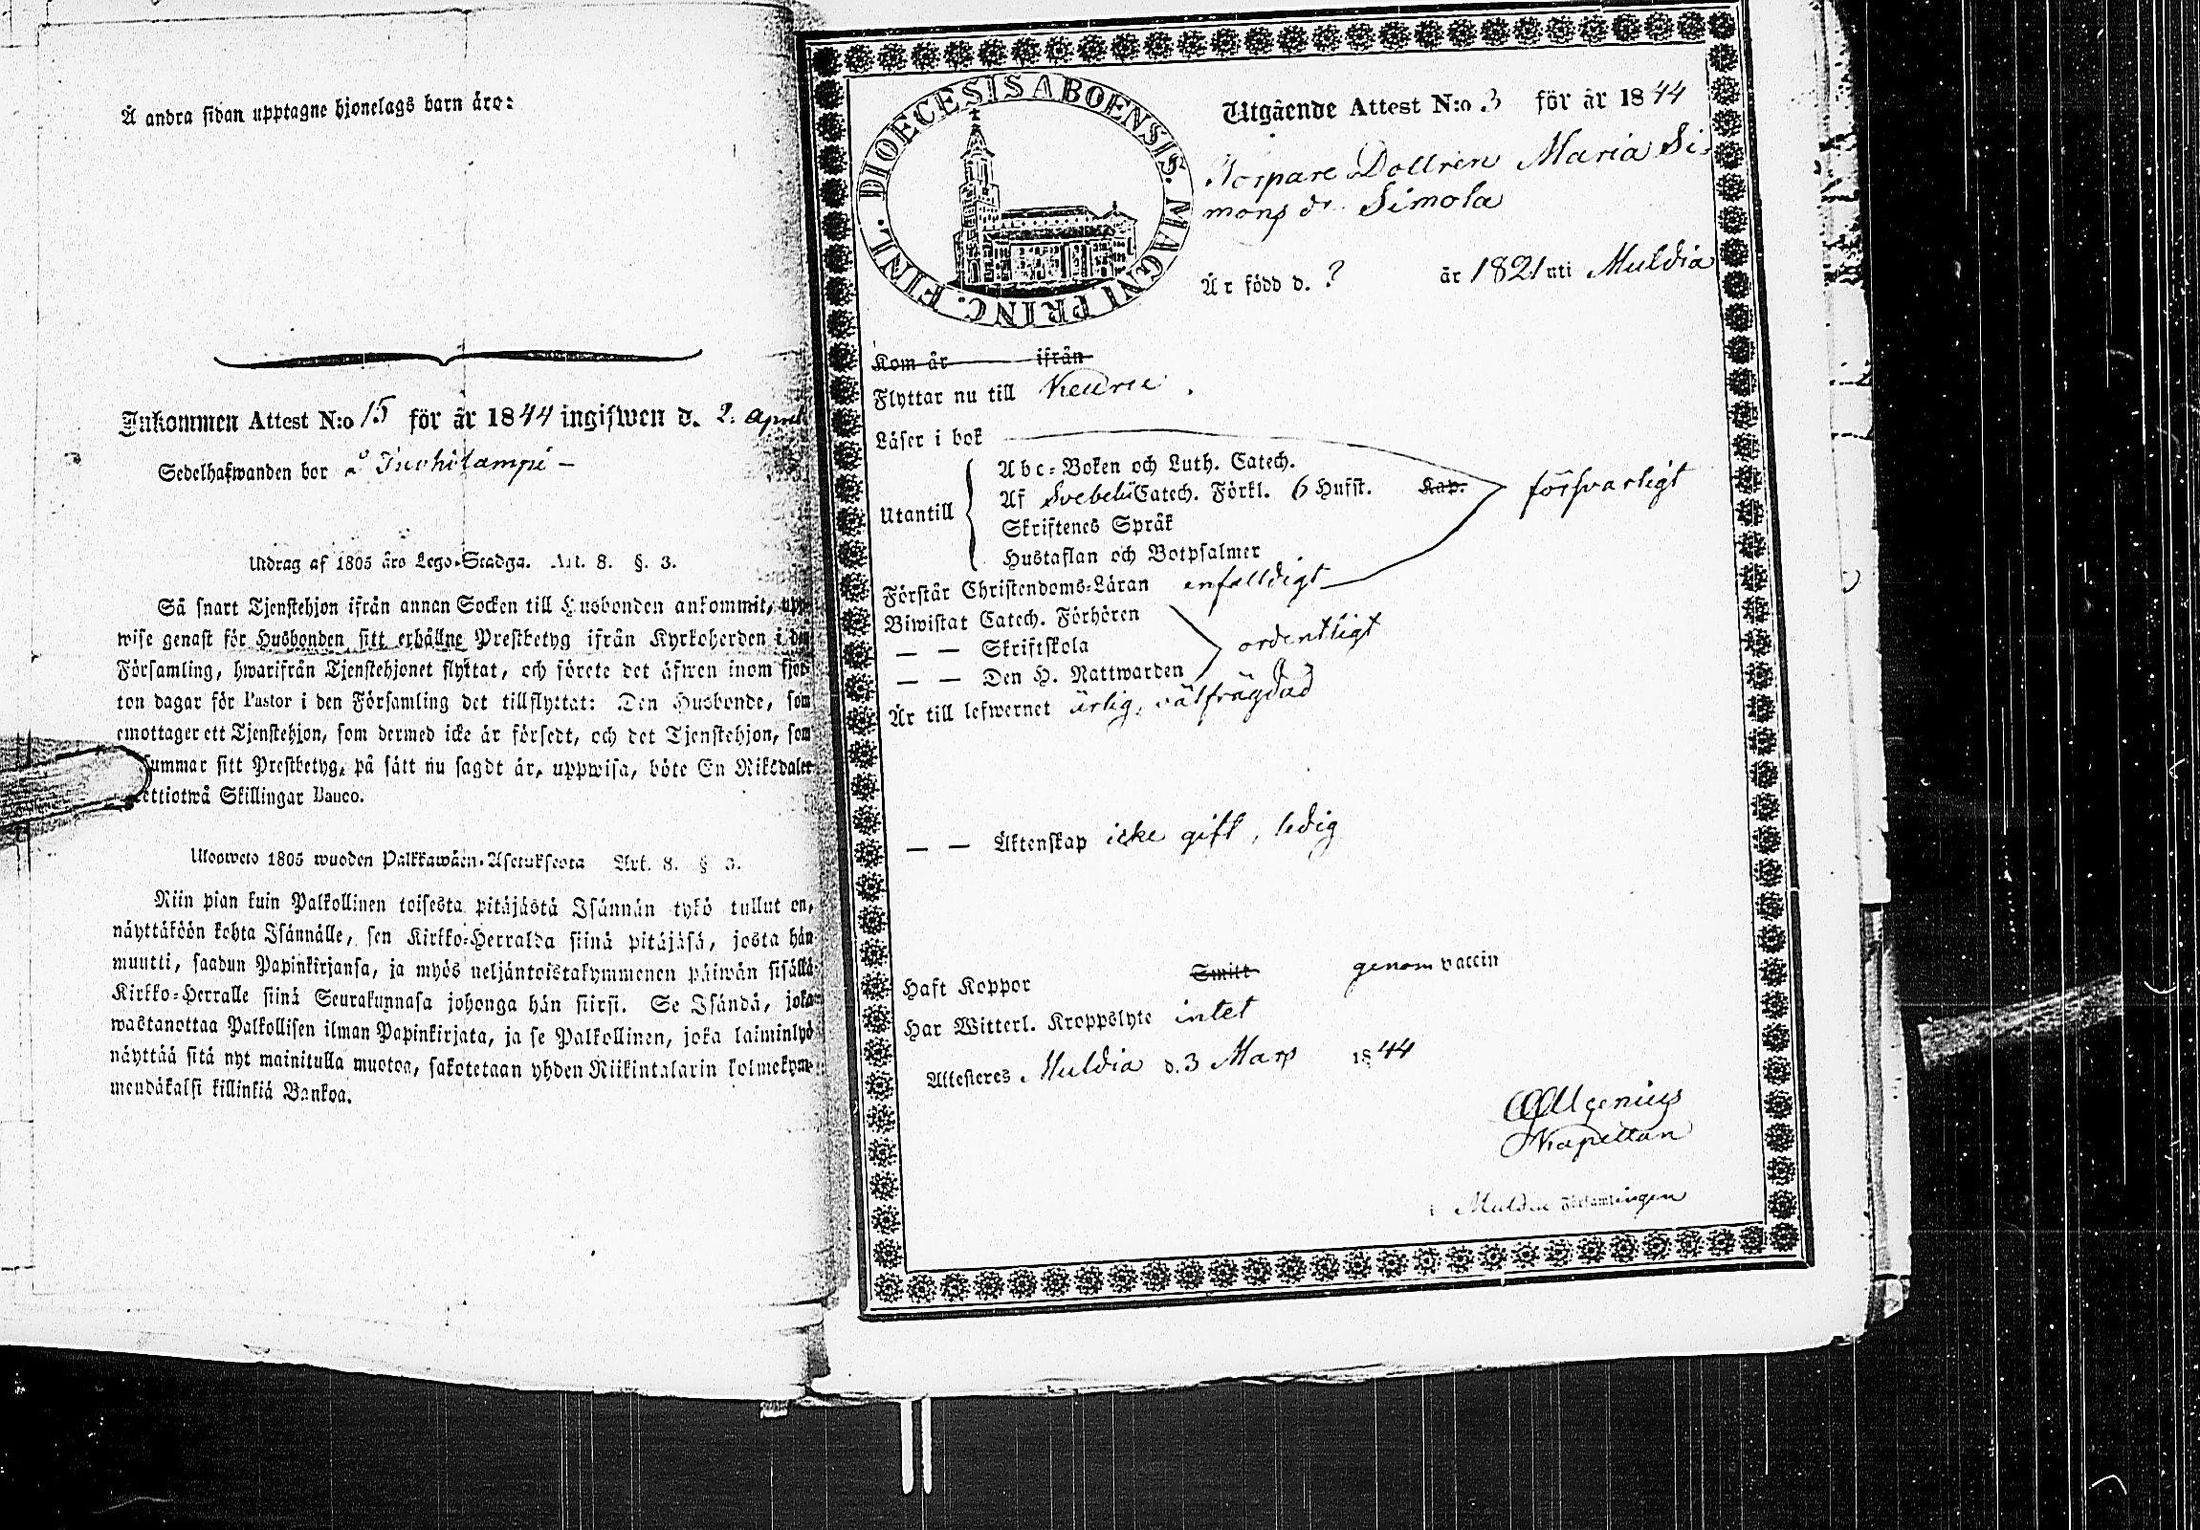 Å andra sidan upptagne hjonelags barn äro:
Inkommen Attest N:o 15 för år 1844 ingifwen d. 2. April
Sedelhafwanden bor å Juohilampi –
Utdrag af 1805 års Lego-Stadga. Art. 8. §. 3.
Så snart Tjenstehjon ifrån annan Socken till Husbonden ankommit, upp-
wise genast för Husbonden sitt erhållne Prestbetyg ifrån Kyrkoherden i den
Församling, hwarifrån Tjenstehjonet flyttat, och förete det äfwen inom fjor-
ton dagar för Pastor i den Församling det tillflyttat: Den Husbonde, som
emottager ett Tjenstehjon, som dermed icke är försedt, och det Tjenstehjon, som
summar sitt Prestbetyg, på sätt nu sagdt är, uppwisa, böte En Riksdaler
trettiotwå Skillingar Banco.
Ulosweto 1805 wuoden Palkkawäen-Asetuksesta Art. 8. § 3.
Niin pian kuin Palkollinen toisesta pitäjästä Isännän tykö tullut on,
näyttäköön kohta Isännälle, sen Kirkko-Herralda siinä pitäjäsä, josta hän
muutti, saadun Papinkirjansa, ja myös neljäntoistakymmenen päiwän sisällä
Kirkko-Herralle siinä Seurakunnasa johonga hän siirsi. Se Isändä, joka
wastanottaa Palkollisen ilman Papinkirjata, ja se Palkollinen, joka laiminlyö
näyttää sitä nyt mainitulla muotoa, sakotetaan yhden Riikintalarin kolmekym-
mendäkaksi killinkiä Bankoa.
DIOECESIS ABOENSIS. MAGNI PRINC. FINL.
Utgående Attest N:o 3 för år 1844
Torpare Dottren Maria Si-
mons dr Simola
Är född d. ? år 1821 uti Muldia
Kom år ifrån
Flyttar nu till Keuru.
Läser i bok
Abc-Boken och Luth. Catech.
Utantill
Af Svebelii Catech. Förkl. 6 Hufst. Kap. försvarligt
Skriftenes Språk
Hustaflan och Botpsalmer
Förstår Christendoms-Läran enfalldigt
Biwistat Catech. Förhören
— — Skriftskola ordentligt
— — Den H. Nattwarden
Är till lefwernet ärlig, välfrägdad
— — Äktenskap icke gift, ledig
Haft Koppor Smitt genom vaccin
Har Witterl. Kroppslyte intet
Attesteres Muldia d. 3 Mars 1844
Kapellan
i Muldia Församlingen